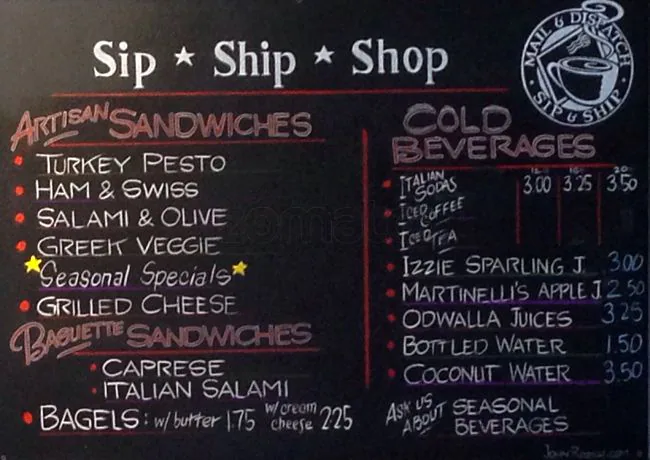 Sip ★ Ship ★ Shop
MAIL & DISPATCH
SIP & SHIP
ARTISAN SANDWICHES
• TURKEY PESTO
• HAM & SWISS
• SALAMI & OLIVE
• GREEK VEGGIE
★ Seasonal Specials ★
• GRILLED CHEESE
BAGUETTE SANDWICHES
• CAPRESE
• ITALIAN SALAMI
• BAGELS: w/ butter 1.75 w/ cream cheese 2.25
COLD
BEVERAGES
12 16 20
• ITALIAN SODAS 3.00 3.25 3.50
• ICED COFFEE
• ICED TEA
• IZZIE SPARLING J. 3.00
• MARTINELLI'S APPLE J. 2.50
• ODWALLA JUICES 3.25
• BOTTLED WATER 1.50
• COCONUT WATER 3.50
ASK US ABOUT SEASONAL
BEVERAGES
zomato